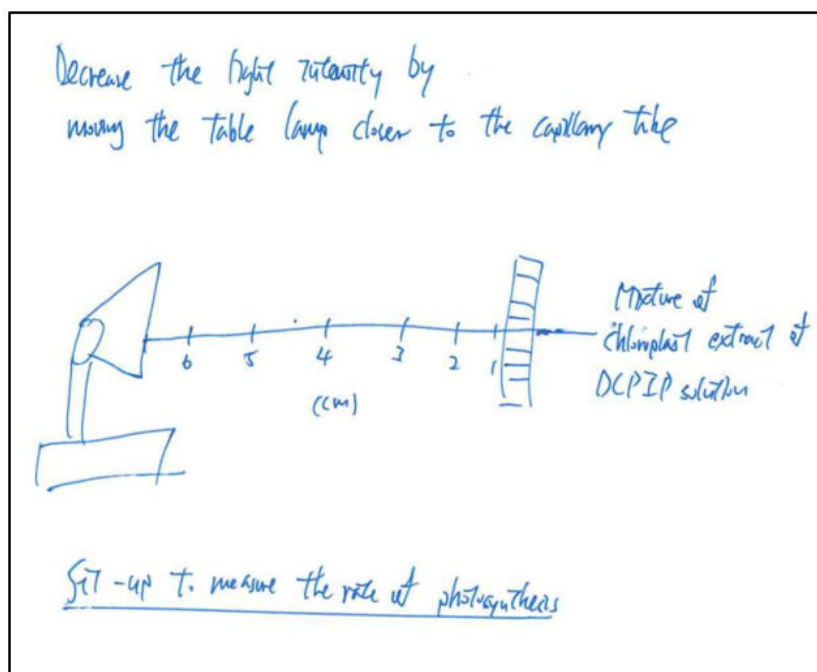 Decrease the light intensity by
moving the table lamp closer to the capillary tube
6 5 4 3 2 1
(cm)
Mixture of
chloroplast extract of
DCPIP solution
Set-up to measure the rate of photosynthesis